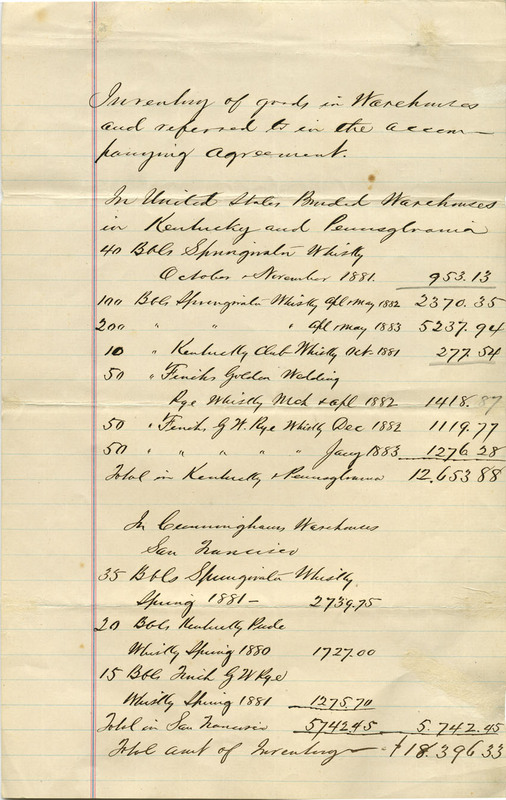 Inventory of goods in Warehouses
and referred to in the accom-
panying agreement.
In United States Bonded Warehouses
in Kentucky and Pennsylvania
40 Bbls Springwater Whisky
October & November 1881. 953.13
100 Bbls Springwater Whisky Apl & May 1882 2370.35
200 " " " Apl & May 1883 5237.94
10 " Kentucky Club Whisky Oct 1881 277.54
50 " Finchs Golden Wedding
Rye Whisky Mch & Apl 1882 1418.87
50 " Finchs G.W. Rye Whisky Dec 1882 1119.77
50 " " " " " Jany 1883 1276.28
Total in Kentucky & Pennsylvania 12.653 88
In Cunninghams Warehouses
San Francisco
35 Bbls Springwater Whisky
Spring 1881 - 2739.75
20 Bbls Kentucky Pride
Whisky Spring 1880 1727.00
15 Bbls Finch G W Rye
Whisky Spring 1881 1275.70
Total in San Francisco 5742.45 5.742.45
Total amt of Inventory - $18.396 33